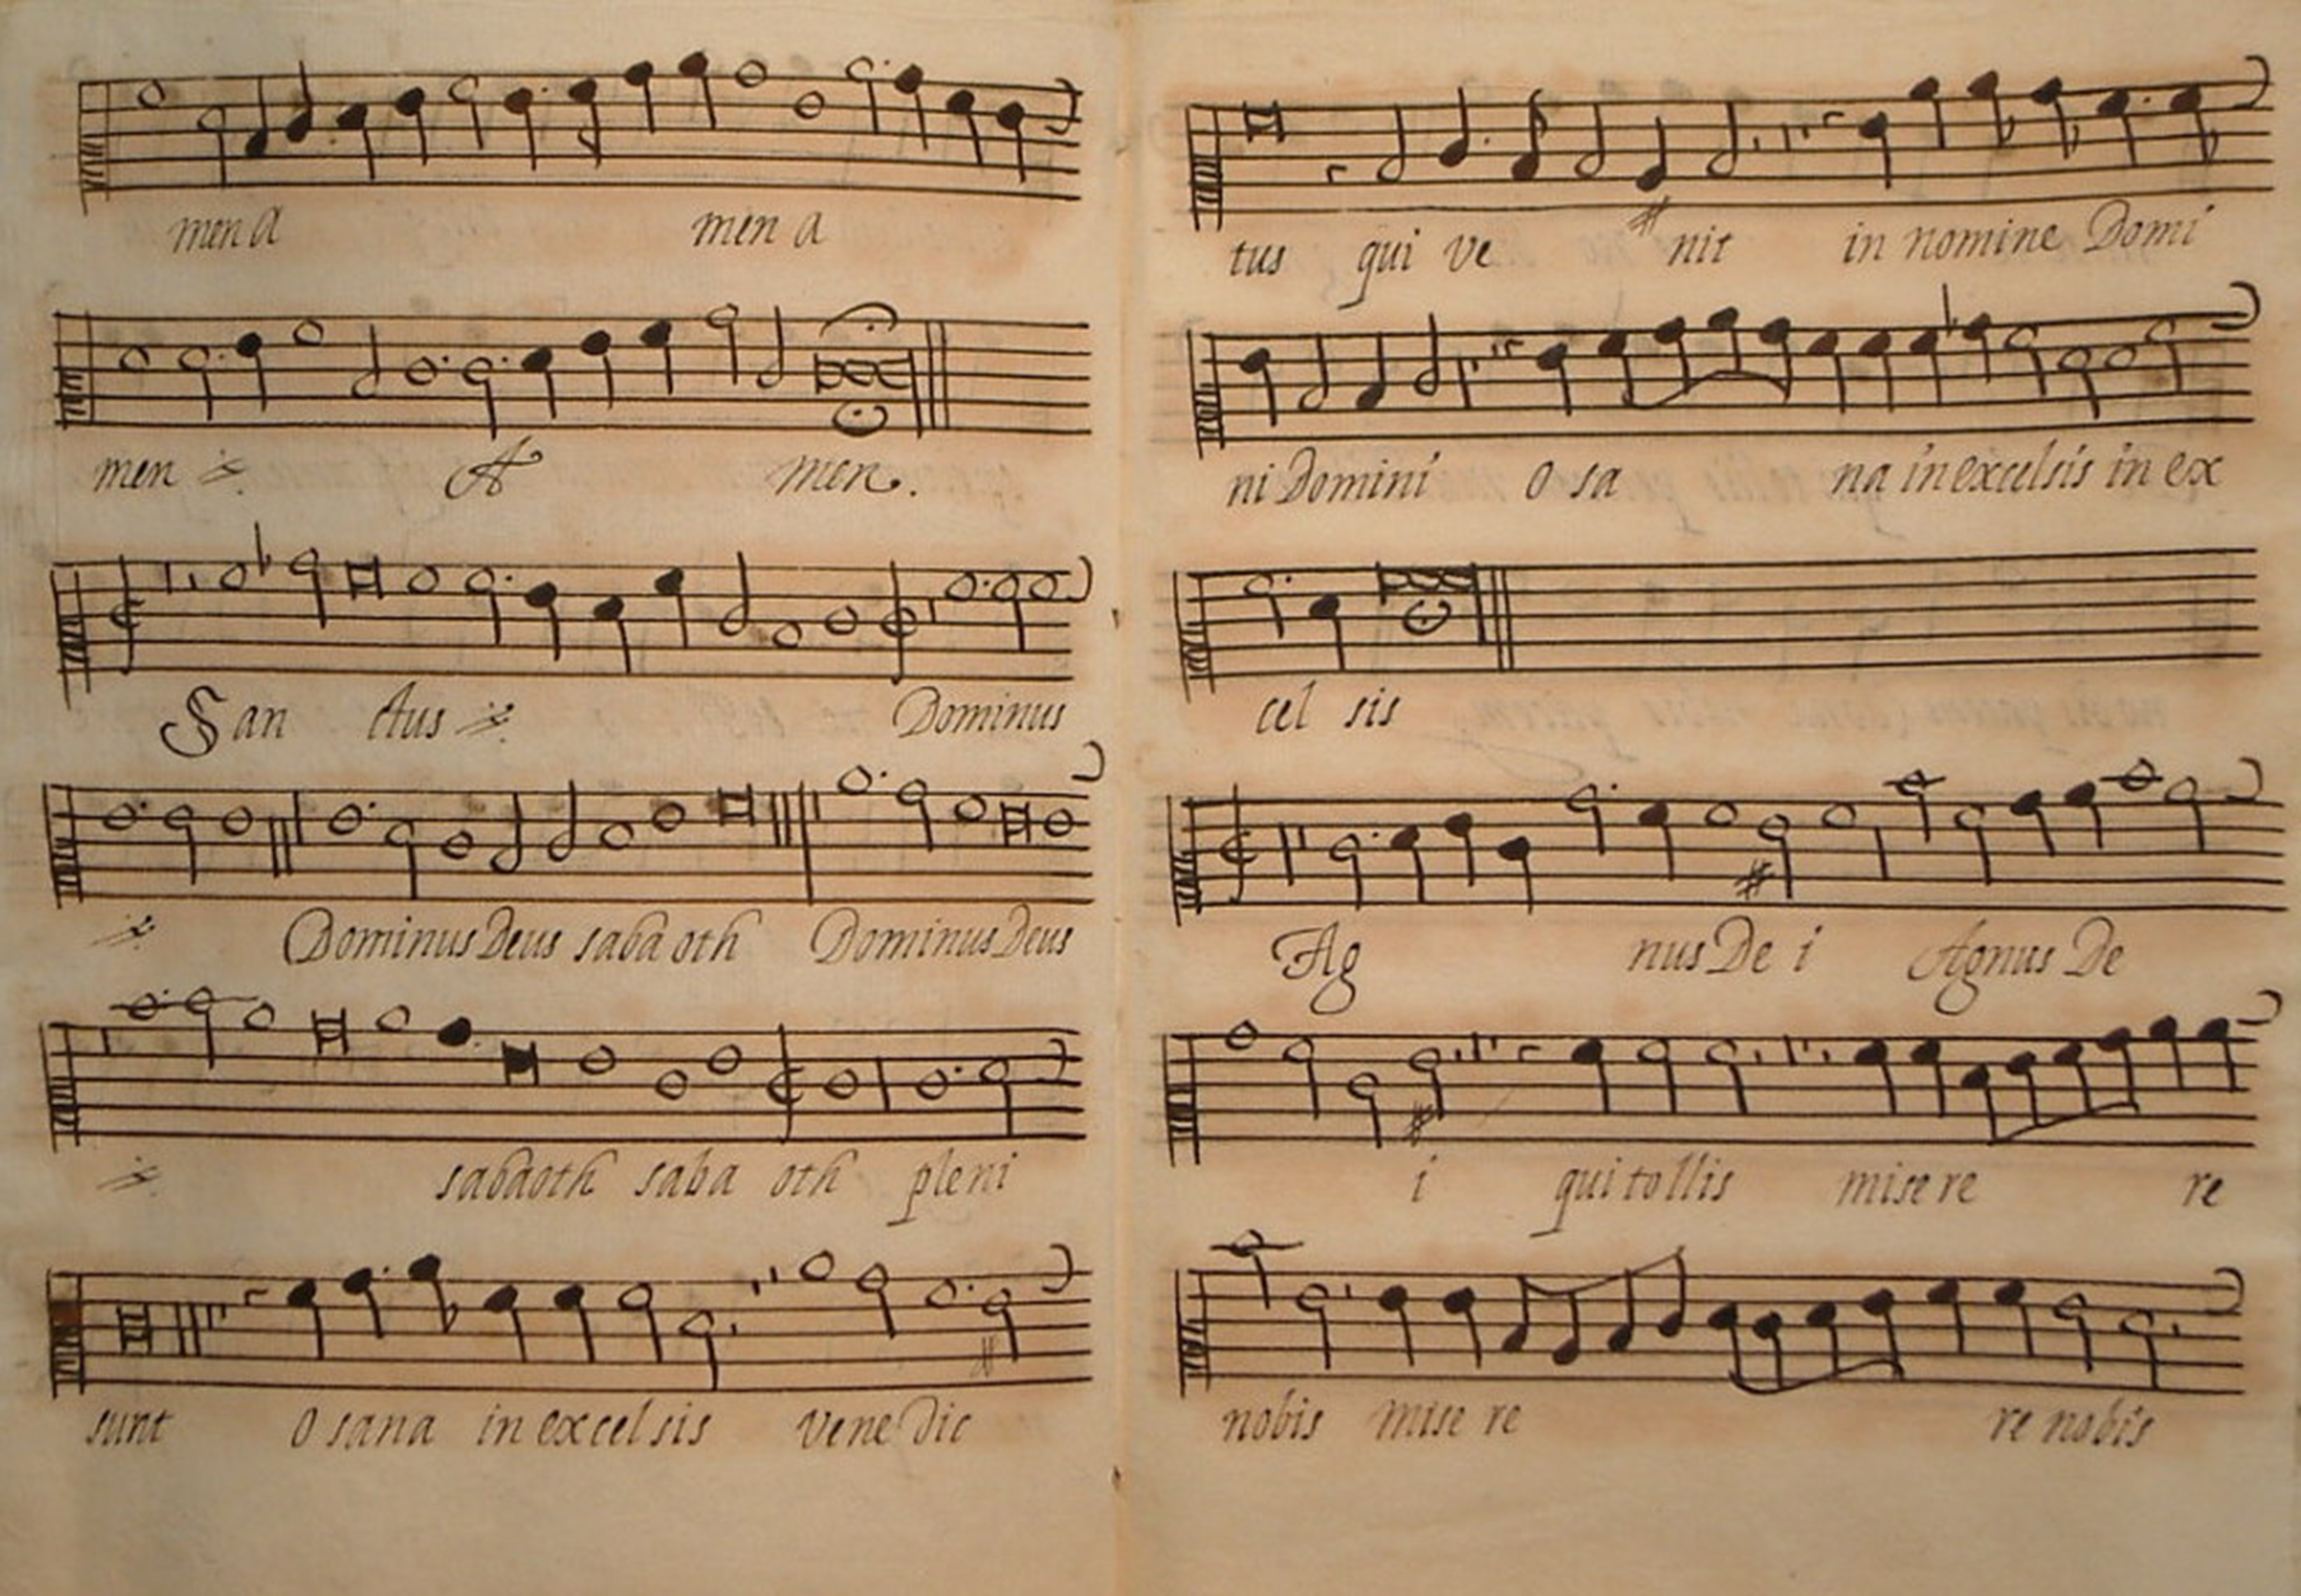 men a men a
men A men.
San ctus Dominus
Dominus Deus sabaoth Dominus Deus
sabaoth saba oth pleni
sunt O sana in excelsis venedic
tus qui ve nit in nomine Domi
ni Domini O sa na in excelsis in ex
cel sis
Ag nus De i Agnus De
i qui tollis misere re
nobis mise re re nobis